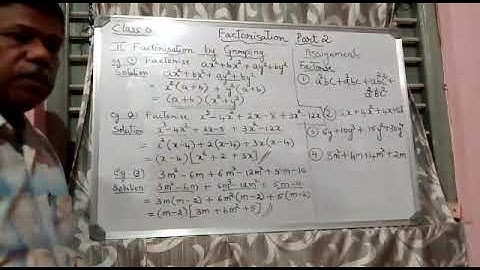 Class 8
Factorisation Part 2
II Factorisation by Grouping
eg ① Factorise ax²+bx²+ay²+by²
Solution ax²+bx²+ay²+by²
= x²(a+b) + y²(a+b)
= (a+b)(x²+y²)
eg ② Factorise x³-4x²+2x-8+3x²-12x
Solution x³-4x²+2x-8+3x²-12x
= x²(x-4)+2(x-4)+3x(x-4)
= (x-4)[x²+2+3x]
eg ③ 3m²-6m+6m³-12m²+5m-10
Solution 3m²-6m+6m³-12m²+5m-10
= 3m(m-2)+6m²(m-2)+5(m-2)
= (m-2)[3m+6m²+5]
Assignment
Factorise
①
②
③
④